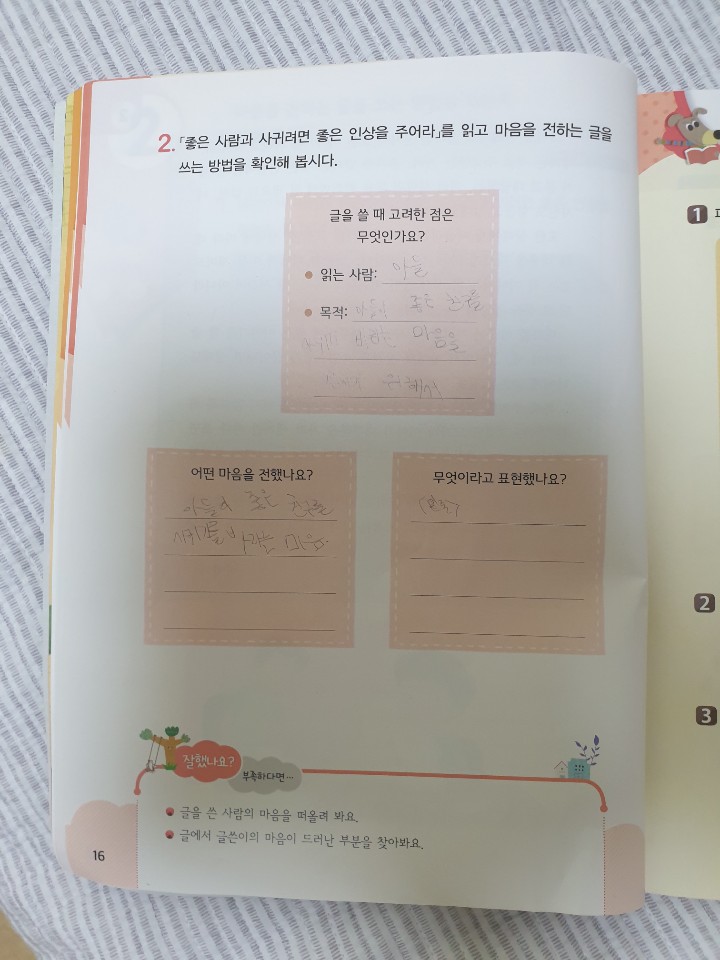 2. 「좋은 사람과 사귀려면 좋은 인상을 주어라」를 읽고 마음을 전하는 글을
쓰는 방법을 확인해 봅시다.
글을 쓸 때 고려한 점은
무엇인가요?
읽는 사람: 아들
목적: 아들이 좋은 친구를
바라는 마음을
위해서
어떤 마음을 전했나요?
아들이 좋은 친구를
사귀기를 바라는 마음.
무엇이라고 표현했나요?
잘했나요?
부족하다면…
글을 쓴 사람의 마음을 떠올려 봐요.
글에서 글쓴이의 마음이 드러난 부분을 찾아봐요.
16
1
2
3